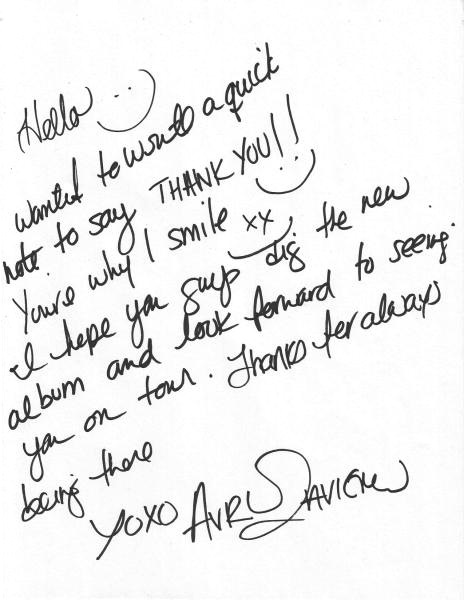 Hello :)
wanted to write a quick
note to say THANK YOU!! :)
You're why I smile xx
I hope you guys dig the new
album and look forward to seeing
you on tour. Thanks for always
being there
XOXO AVRIL LAVIGNE